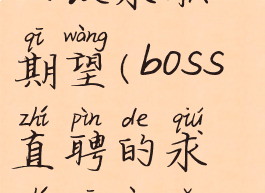 qī wàng
期望(boss
zhí pìn de qiú
直聘的求